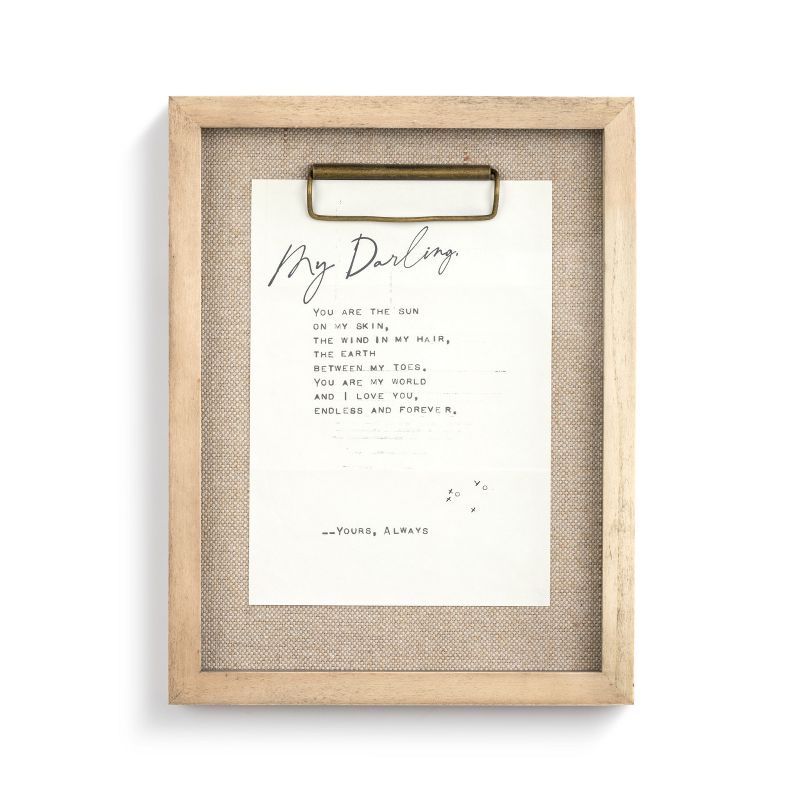 My Darling.
YOU ARE THE SUN
ON MY SKIN,
THE WIND IN MY HAIR,
THE EARTH
BETWEEN MY TOES.
YOU ARE MY WORLD
AND I LOVE YOU,
ENDLESS AND FOREVER.
x o x x y o x
--YOURS, ALWAYS